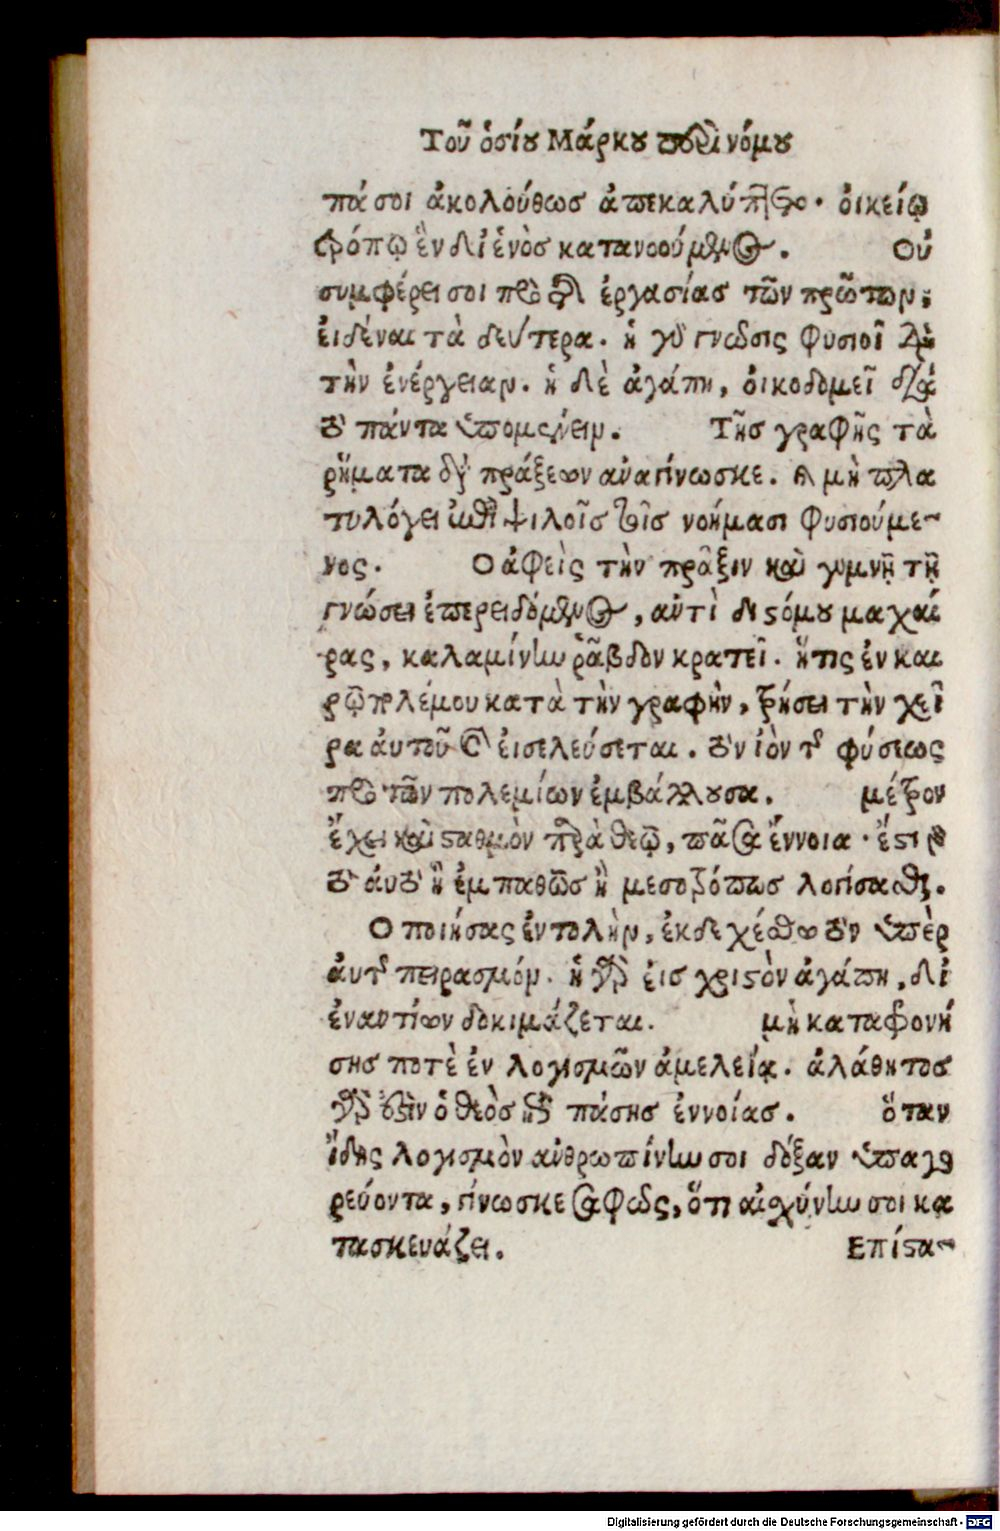 Τοῦ ὁσίου Μάρκου περὶ νόμου
πάσοι ἀκολούθως ἀπεκαλύπτετο. οἰκείῳ
τρόπῳ ἓν δι' ἑνὸς κατανοούμενος. Οὐ
συμφέρει σοι πρὸ τῆς ἐργασίας τῶν πρώτων,
εἰδέναι τὰ δεύτερα. ἡ γὰρ γνῶσις φυσιοῖ διὰ
τὴν ἐνέργειαν. ἡ δὲ ἀγάπη, οἰκοδομεῖ διὰ
τοῦ πάντα ὑπομένειν. Τῆς γραφῆς τὰ
ῥήματα διὰ πράξεων αναγίνωσκε. καὶ μὴ πλα
τυλόγει ἐπὶ ψιλοῖς τοῖς νοήμασι φυσιούμε-
νος. Ο ἀφεὶς τὴν πρᾶξιν καὶ γυμνῇ τῇ
γνώσει ἐπερειδόμενος, αντὶ διστόμου μαχαί
ρας, καλαμίνην ῥάβδον κρατεῖ. ἥτις ἐν και
ρῷ πολέμου κατὰ τὴν γραφὴν, τρήσει τὴν χεῖ
ρα ἀυτοῦ καὶ εἰσελεύσεται. τὸν ἰὸν τῆς φύσεως
πρὸ τῶν πολεμίων ἐμβάλλουσα. μέτρον
ἔχει καὶ σταθμὸν παρὰ θεῷ, πᾶσα ἔννοια. ἔστι γὰρ
τὸ ἀυτὸ ἢ ἐμπαθῶς ἢ μεσοτρόπως λογίσασθαι.
Ο ποιήσας ἐντολὴν, ἐκδεχέσθω τὸν ὑπὲρ
ἀυτῆς πειρασμόν. ἡ γὰρ εἰς χριστὸν ἀγάπη, δι'
ἐναντίων δοκιμάζεται. μὴ καταφρονή
σης ποτὲ ἐν λογισμῶν ἀμελείᾳ. ἀλάθητος
γάρ ἐστιν ὁ θεὸς ἀπὸ πάσης ἐννοίας. ὅταν
ἴδης λογισμὸν ανθρωπίνην σοι δόξαν ὑπαγο
ρεύοντα, γίνωσκε σαφῶς, ὅτι αἰσχύνην σοι κα
τασκευάζει. Επίστα-
Digitalisierung gefördert durch die Deutsche Forschungsgemeinschaft - DFG